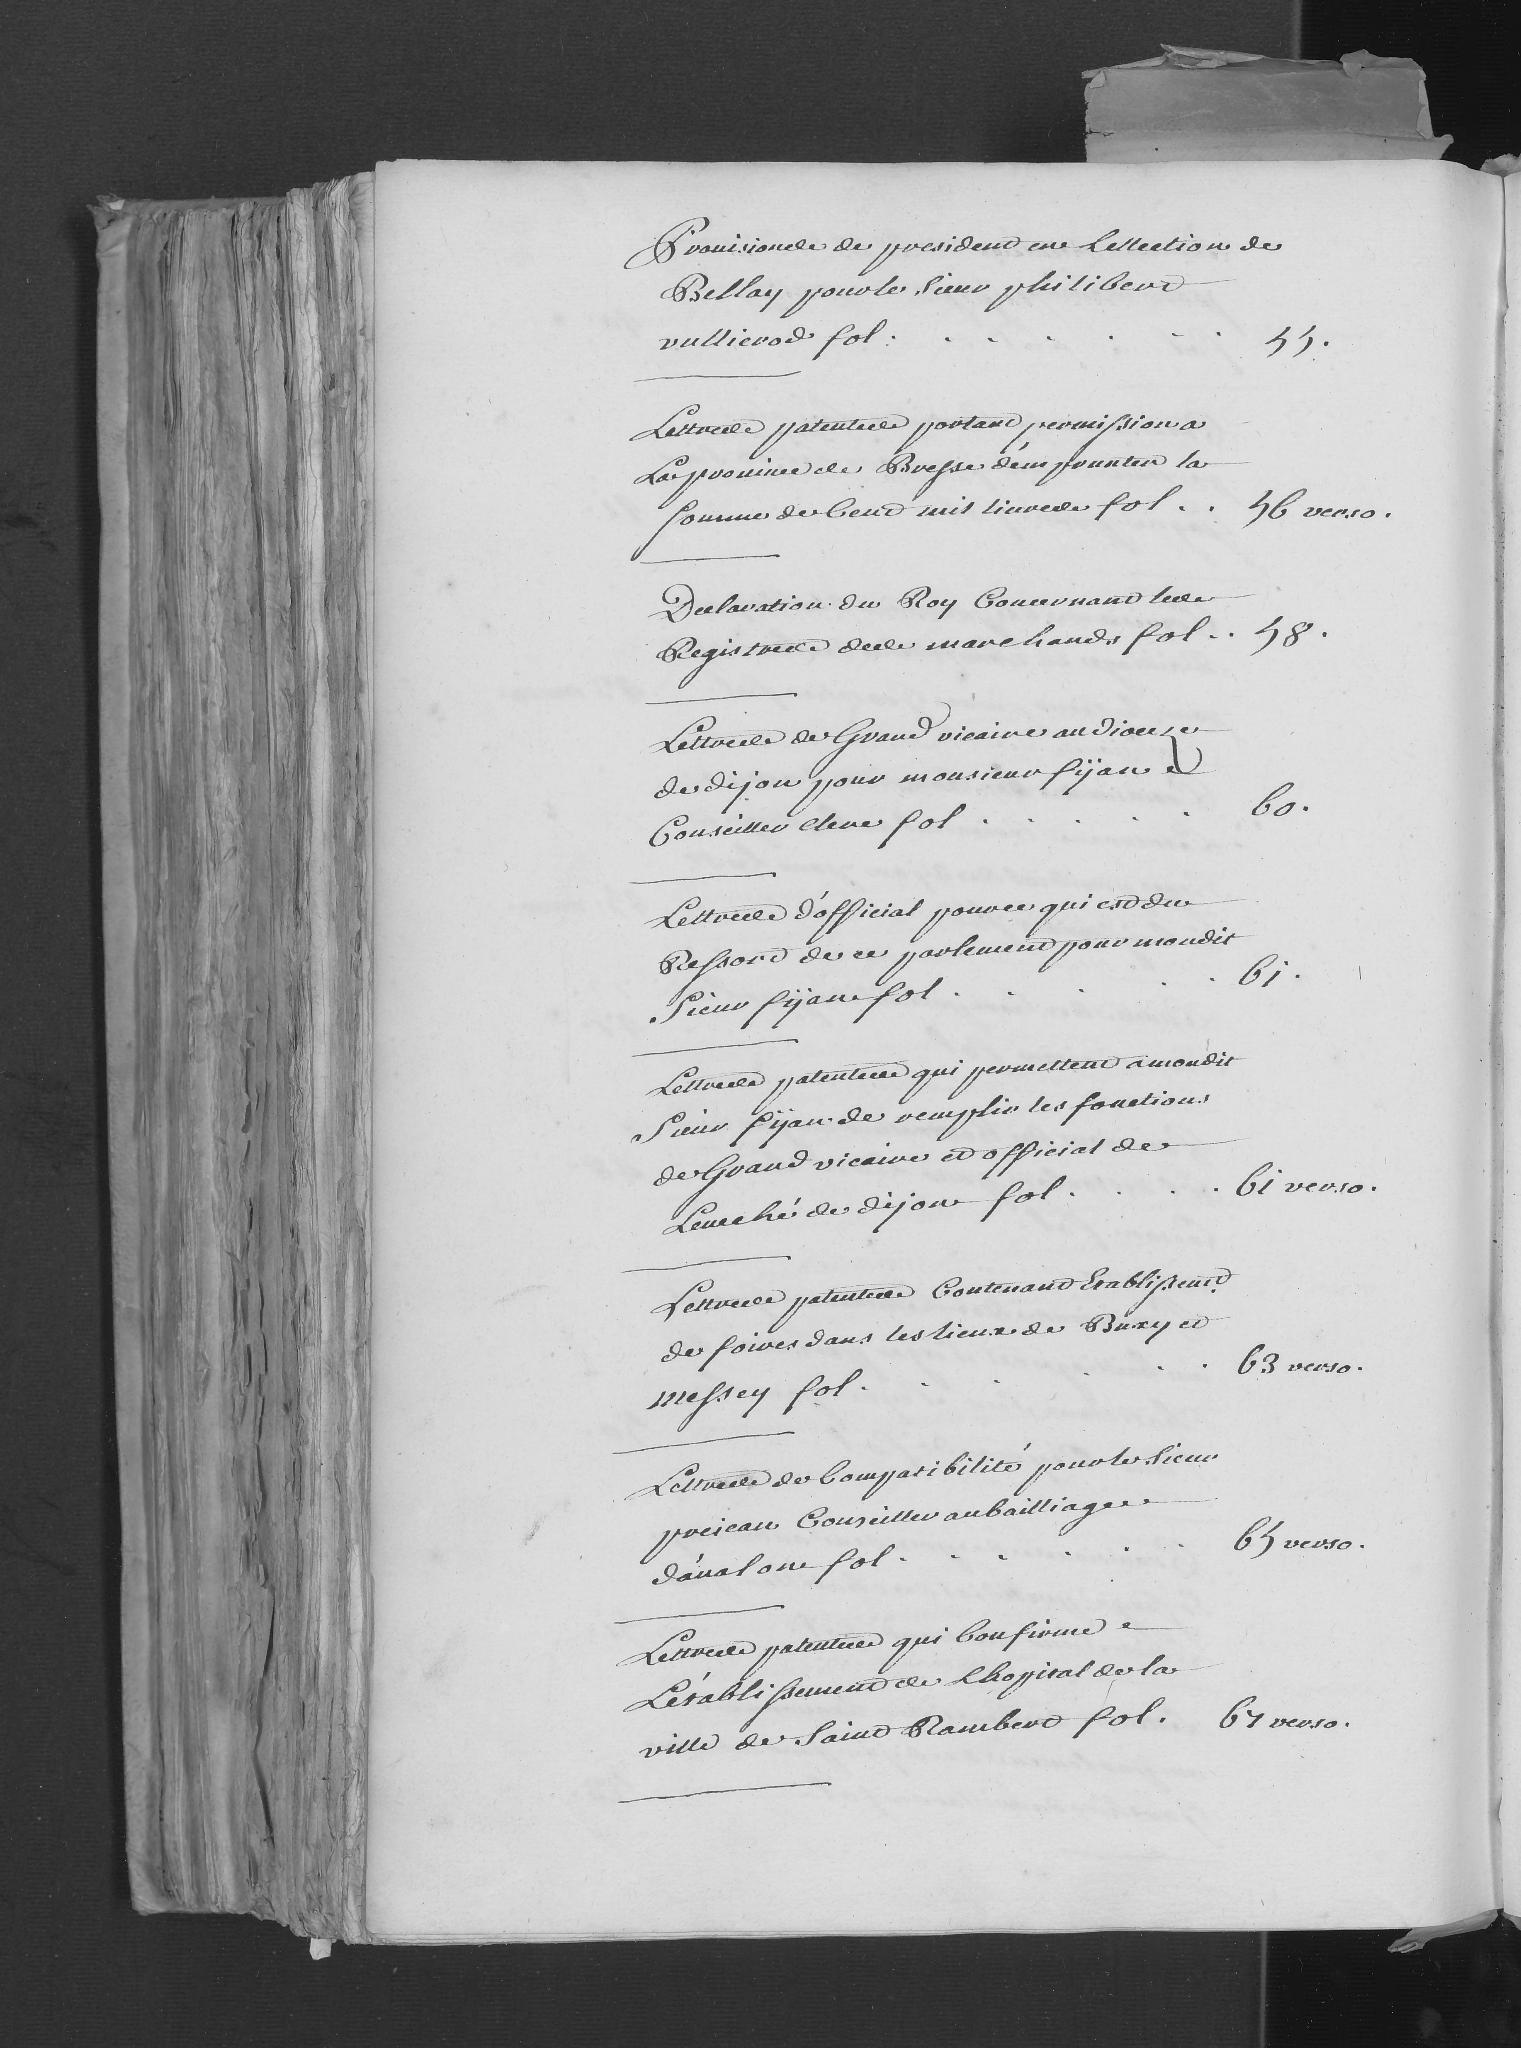 Prouisions de president en Lellection de
Bellay pour le Sieur philibert
vullierod fol. 55.
Lettres patentes portant permission a
La prouince de Bresse d'emprunter la
somme de Cent mil liures fol. 56 verso.
Declaration du Roy Concernant les
Registres des marchands fol. 58.
Lettres de Grand vicaire au dioceze
de dijon pour monsieur fijan
Conseiller clerc fol 60.
Lettres d'official pour ce qui est du
Ressort de ce parlement pour mondit
Sieur fijan fol. 61.
Lettres patentes qui permettent a mondit
Sieur fijan de remplir les fonctions
de Grand vicaire et official de
Leueché de dijon fol. 61 verso.
Lettres patentes Contenant Etablissemt.
de foires dans les lieux de Buxy et
messey fol. 63 verso.
Lettres de Compatibilité pour le Sieur
preiean Conseiller au bailliage
d'aualon fol. 65 verso.
Lettres patentes qui Confirme
L'établissement de Lhopital de la
ville de Saint Rambert fol. 67 verso.